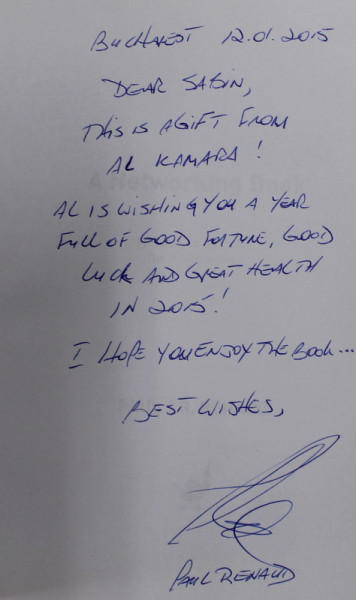 BUCHAREST 12.01.2015
DEAR SABIN,
THIS IS A GIFT FROM
AL KAMARA!
AL IS WISHING YOU A YEAR
FULL OF GOOD FORTUNE, GOOD
LUCK AND GREAT HEALTH
IN 2015!
I HOPE YOU ENJOY THE BOOK...
BEST WISHES,
PAUL RENAUD